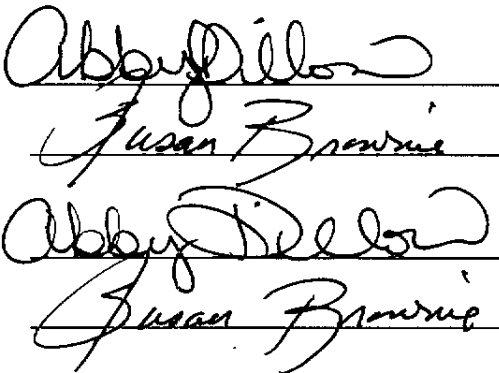 Abby Dillon
Susan Brownie
Abby Dillon
Susan Brownie